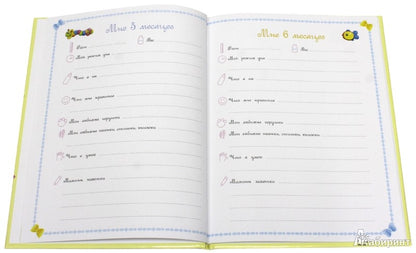 Мне 5 месяцев
Рост
Вес
Мой режим дня
Что я ем
Что мне нравится
Мои любимые игрушки
Мои любимые сказки, стишки, песенки
Что я умею
Мамины заметки
Мне 6 месяцев
Рост
Вес
Мой режим дня
Что я ем
Что мне нравится
Мои любимые игрушки
Мои любимые сказки, стишки, песенки
Что я умею
Мамины заметки
Лабиринт